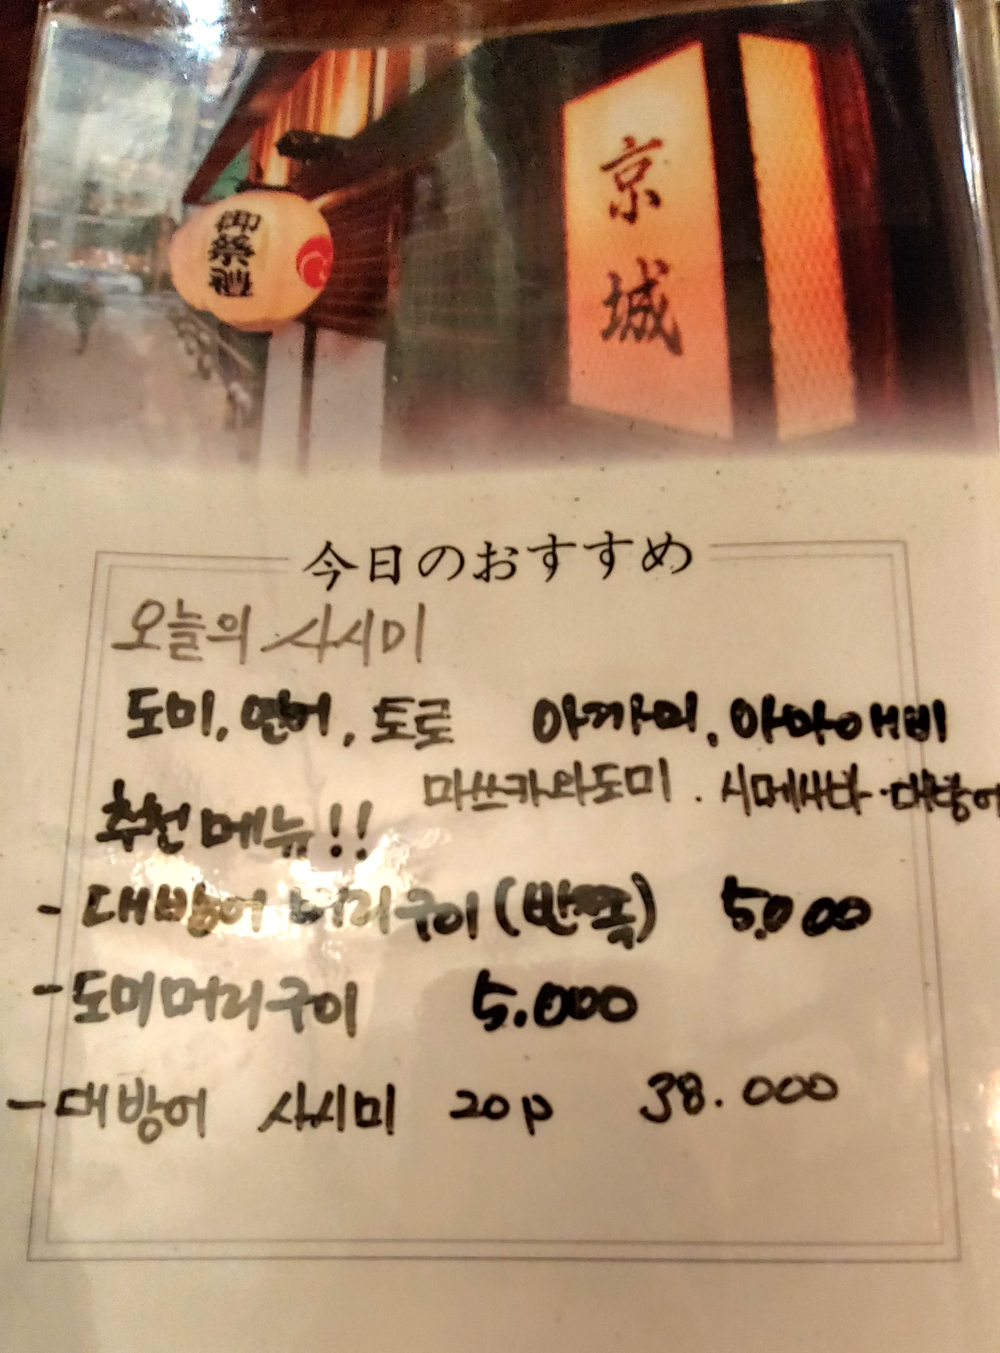 御祭禮
京城
今日のおすすめ
오늘의 사시미
도미, 연어, 토로 아까미, 아마에비
마쓰카와도미 . 시메사바 · 대방어
추천메뉴!!
- 대방어 머리구이 (반쪽) 5.000
- 도미머리구이 5.000
- 대방어 사시미 20p 38.000